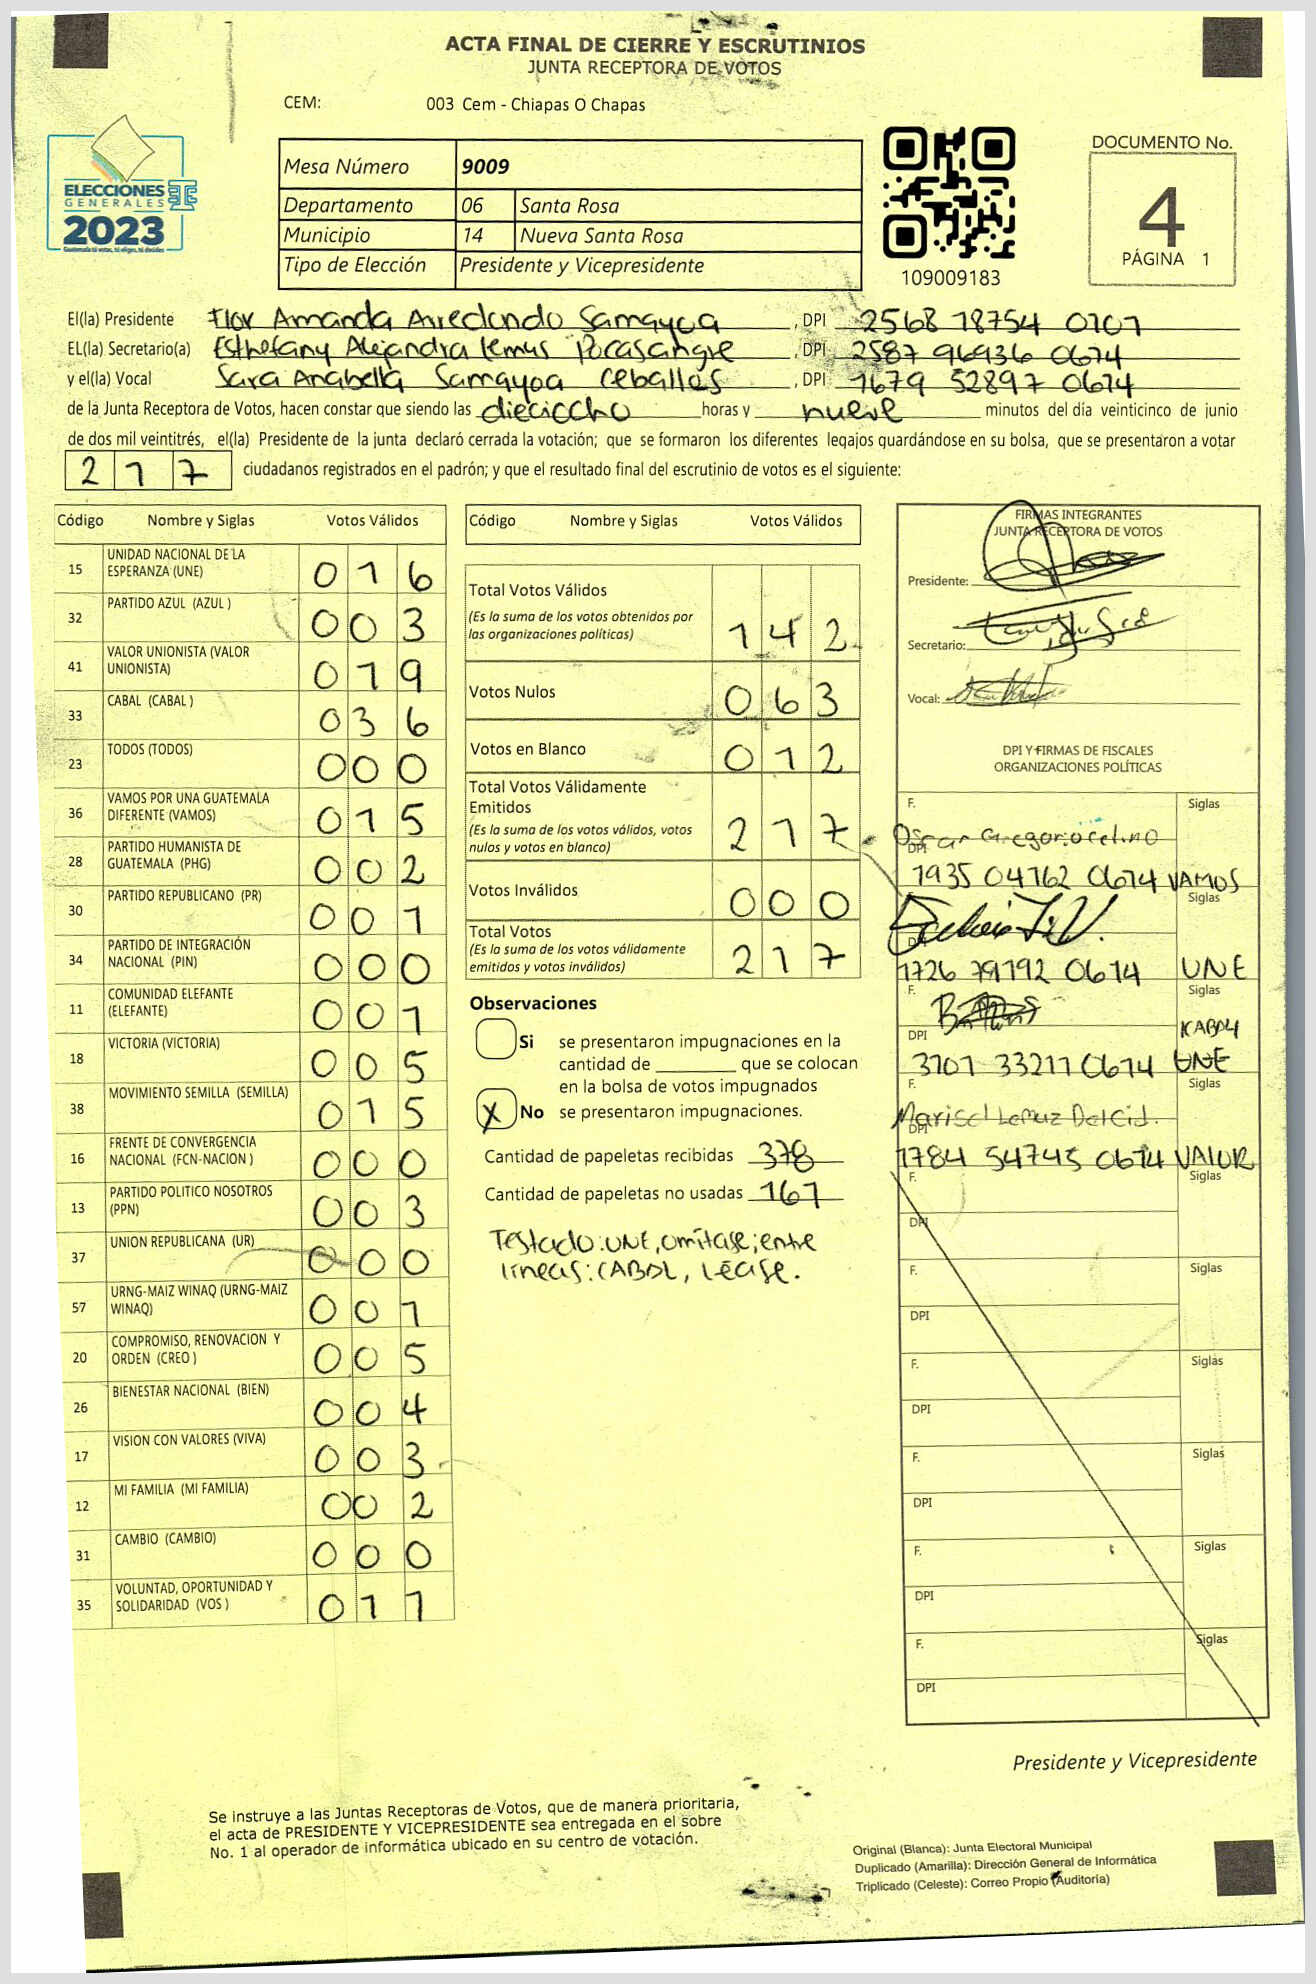 ACTA FINAL DE CIERRE Y ESCRUTINIOS
JUNTA RECEPTORA DE VOTOS
CEM: 003 Cem - Chiapas O Chapas
ELECCIONES
GENERALES
2023
Guatemala tú votas, tú eliges, tú decides
Mesa Número 9009
Departamento 06 Santa Rosa
Municipio 14 Nueva Santa Rosa
Tipo de Elección Presidente y Vicepresidente
109009183
DOCUMENTO No.
4
PÁGINA 1
El(la) Presidente Flor Amanda Arredondo Samayoa, DPI 2568 78754 0101
EL(la) Secretario(a) Esthefany Alejandra Lemus Pocasangre, DPI 2587 96936 0614
y el(la) Vocal Sara Anabella Samayoa Ceballos, DPI 1679 52897 0614
de la Junta Receptora de Votos, hacen constar que siendo las dieciocho horas y nueve minutos del día veinticinco de junio
de dos mil veintitrés, el(la) Presidente de la junta declaró cerrada la votación; que se formaron los diferentes legajos guardándose en su bolsa, que se presentaron a votar
217 ciudadanos registrados en el padrón; y que el resultado final del escrutinio de votos es el siguiente:
Código Nombre y Siglas Votos Válidos
15 UNIDAD NACIONAL DE LA ESPERANZA (UNE) 016
32 PARTIDO AZUL (AZUL ) 003
41 VALOR UNIONISTA (VALOR UNIONISTA) 019
33 CABAL (CABAL ) 036
23 TODOS (TODOS) 000
36 VAMOS POR UNA GUATEMALA DIFERENTE (VAMOS) 015
28 PARTIDO HUMANISTA DE GUATEMALA (PHG) 002
30 PARTIDO REPUBLICANO (PR) 001
34 PARTIDO DE INTEGRACIÓN NACIONAL (PIN) 000
11 COMUNIDAD ELEFANTE (ELEFANTE) 001
18 VICTORIA (VICTORIA) 005
38 MOVIMIENTO SEMILLA (SEMILLA) 015
16 FRENTE DE CONVERGENCIA NACIONAL (FCN-NACION ) 000
13 PARTIDO POLITICO NOSOTROS (PPN) 003
37 UNION REPUBLICANA (UR) 000
57 URNG-MAIZ WINAQ (URNG-MAIZ WINAQ) 001
20 COMPROMISO, RENOVACION Y ORDEN (CREO ) 005
26 BIENESTAR NACIONAL (BIEN) 004
17 VISION CON VALORES (VIVA) 003
12 MI FAMILIA (MI FAMILIA) 002
31 CAMBIO (CAMBIO) 000
35 VOLUNTAD, OPORTUNIDAD Y SOLIDARIDAD (VOS ) 011
Código Nombre y Siglas Votos Válidos
Total Votos Válidos
(Es la suma de los votos obtenidos por
las organizaciones políticas) 142
Votos Nulos 063
Votos en Blanco 012
Total Votos Válidamente
Emitidos
(Es la suma de los votos válidos, votos
nulos y votos en blanco) 217
Votos Inválidos 000
Total Votos
(Es la suma de los votos válidamente
emitidos y votos inválidos) 217
Observaciones
Si se presentaron impugnaciones en la
cantidad de ________ que se colocan
en la bolsa de votos impugnados
X No se presentaron impugnaciones.
Cantidad de papeletas recibidas 378
Cantidad de papeletas no usadas 161
Testado: UNE, omítase; entre
líneas: CABAL, Léase.
FIRMAS INTEGRANTES
JUNTA RECEPTORA DE VOTOS
Presidente:
Secretario:
Vocal:
DPI Y FIRMAS DE FISCALES
ORGANIZACIONES POLÍTICAS
F. Siglas
Oscar Gregorio
DPI 1935 04762 0614 VAMOS
F. Siglas
DPI 1726 79792 0614 UNE
F. Siglas
KABAL
DPI 3101 33211 0614 UNE
F. Siglas
Marisol Lemuz Del Cid.
DPI 1784 54745 0614 VALOR
F. Siglas
DPI
F. Siglas
DPI
F. Siglas
DPI
F. Siglas
DPI
F. Siglas
DPI
F. Siglas
DPI
Presidente y Vicepresidente
Se instruye a las Juntas Receptoras de Votos, que de manera prioritaria,
el acta de PRESIDENTE Y VICEPRESIDENTE sea entregada en el sobre
No. 1 al operador de informática ubicado en su centro de votación.
Original (Blanca): Junta Electoral Municipal
Duplicado (Amarilla): Dirección General de Informática
Triplicado (Celeste): Correo Propio (Auditoría)